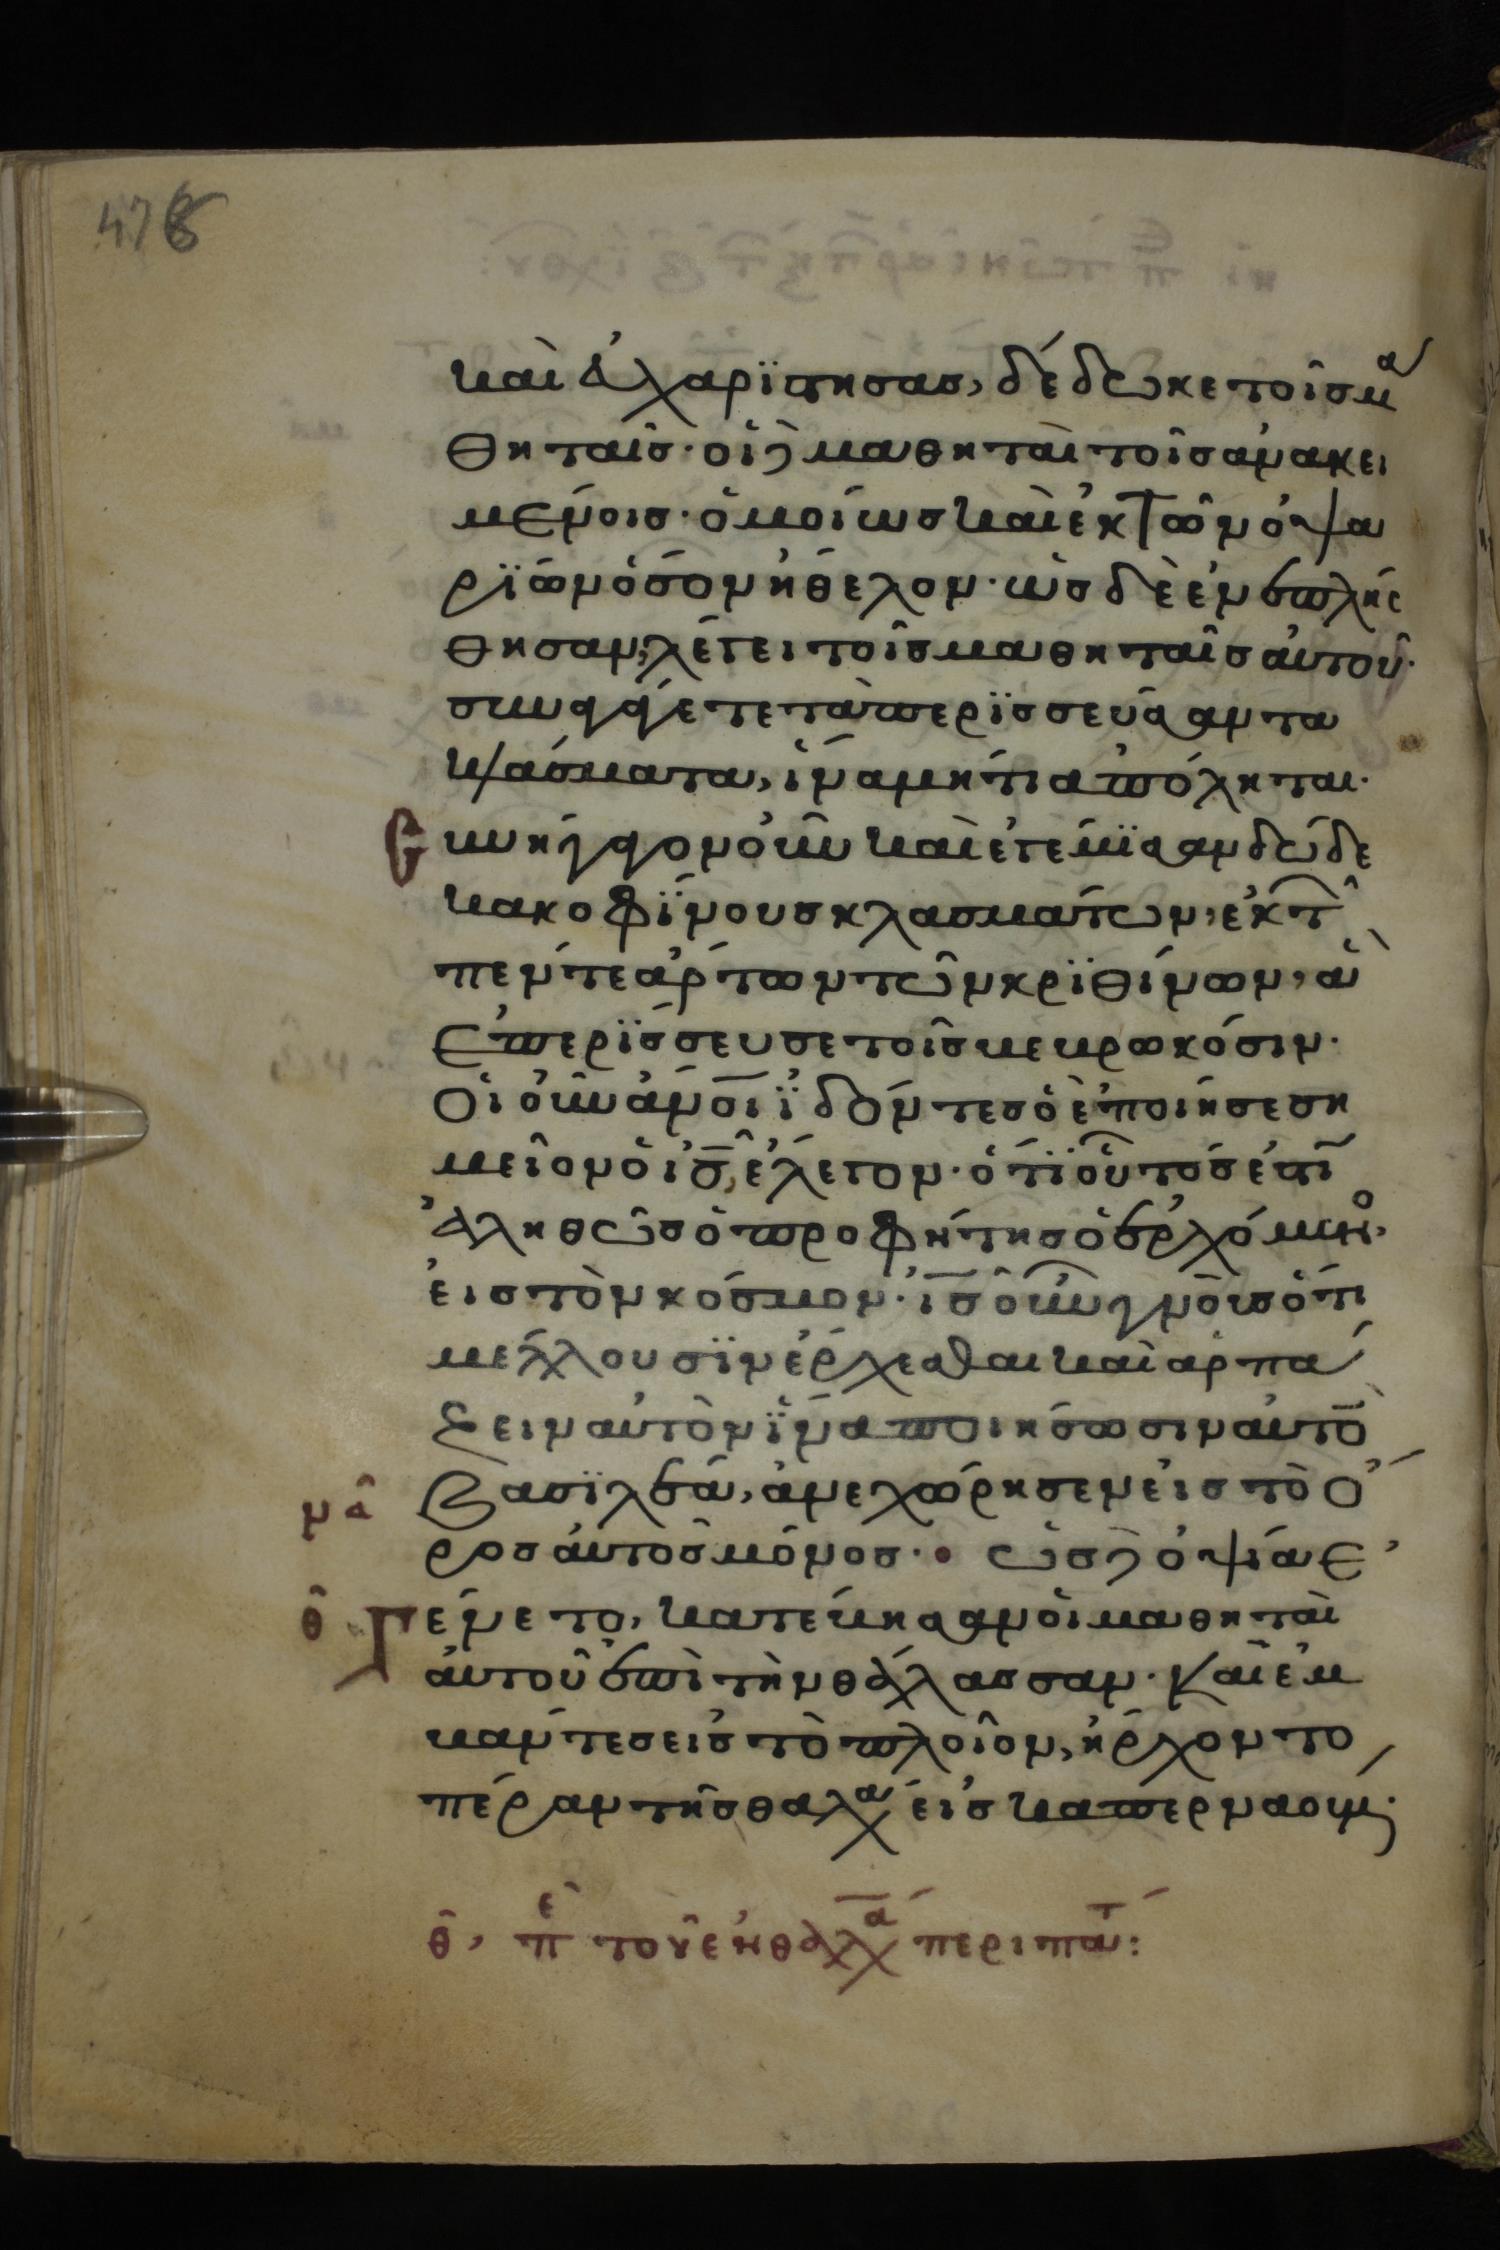 476
καὶ εὐχαρϊστησας, δέδωκε τοῖς μα
θηταῖς· οἱ δὲ μαθηταὶ τοῖς ἀνακει
μένοις· ὁμοίως καὶ ἐκ τῶν ὀψα
ρϊων ὅσον ἤθελον· ὡς δὲ ἐνεπλήσ
θησαν, λέγει τοῖς μαθηταῖς αὐτοῦ·
συναγάγετε τὰ περϊσσεύσαντα
κλάσματα, ἵνα μή τι ἀπόληται·
Συνήγαγον οὖν καὶ ἐγέμϊσαν δώδε
κα κοφϊνους κλασμάτων, ἐκ τ
πέντε ἄρτων τῶν κρϊθίνων, ἃ
ἐπερϊσσευσε τοῖς βεβρωκόσιν·
Οἱ οὖν ἄνοι ϊδόντες ὃ ἐποίησε ση
μεῖον ὁ ις, ἔλεγον· ὅτϊ οὗτός ἐστϊ
ἀληθῶς ὁ προφήτης ὁ ἐρχόμενο
εἰς τὸν κόσμον· ις οὖν γνοὺς ὅτι
μέλλουσϊν ἔρχεσθαι καὶ ἁρπά
ζειν αὐτὸν ϊνα ποιήσωσιν αὐτὸ
μα βασϊλέα, ἀνεχώρησεν εἰς τὸ ὄ
ρος αὐτὸς μόνος· ὡς δὲ ὀψία ἐ
θ Γένετο, κατέβησαν οἱ μαθηταὶ
αὐτοῦ ἐπὶ τὴν θάλασσαν· καὶ ἐμ
βάντες εἰς τὸ πλοῖον, ἤρχοντο
πέραν τῆς θαλα εἰς καπερναούμ·
θ, πε τοῦ ἐν θαλα περιπατ: